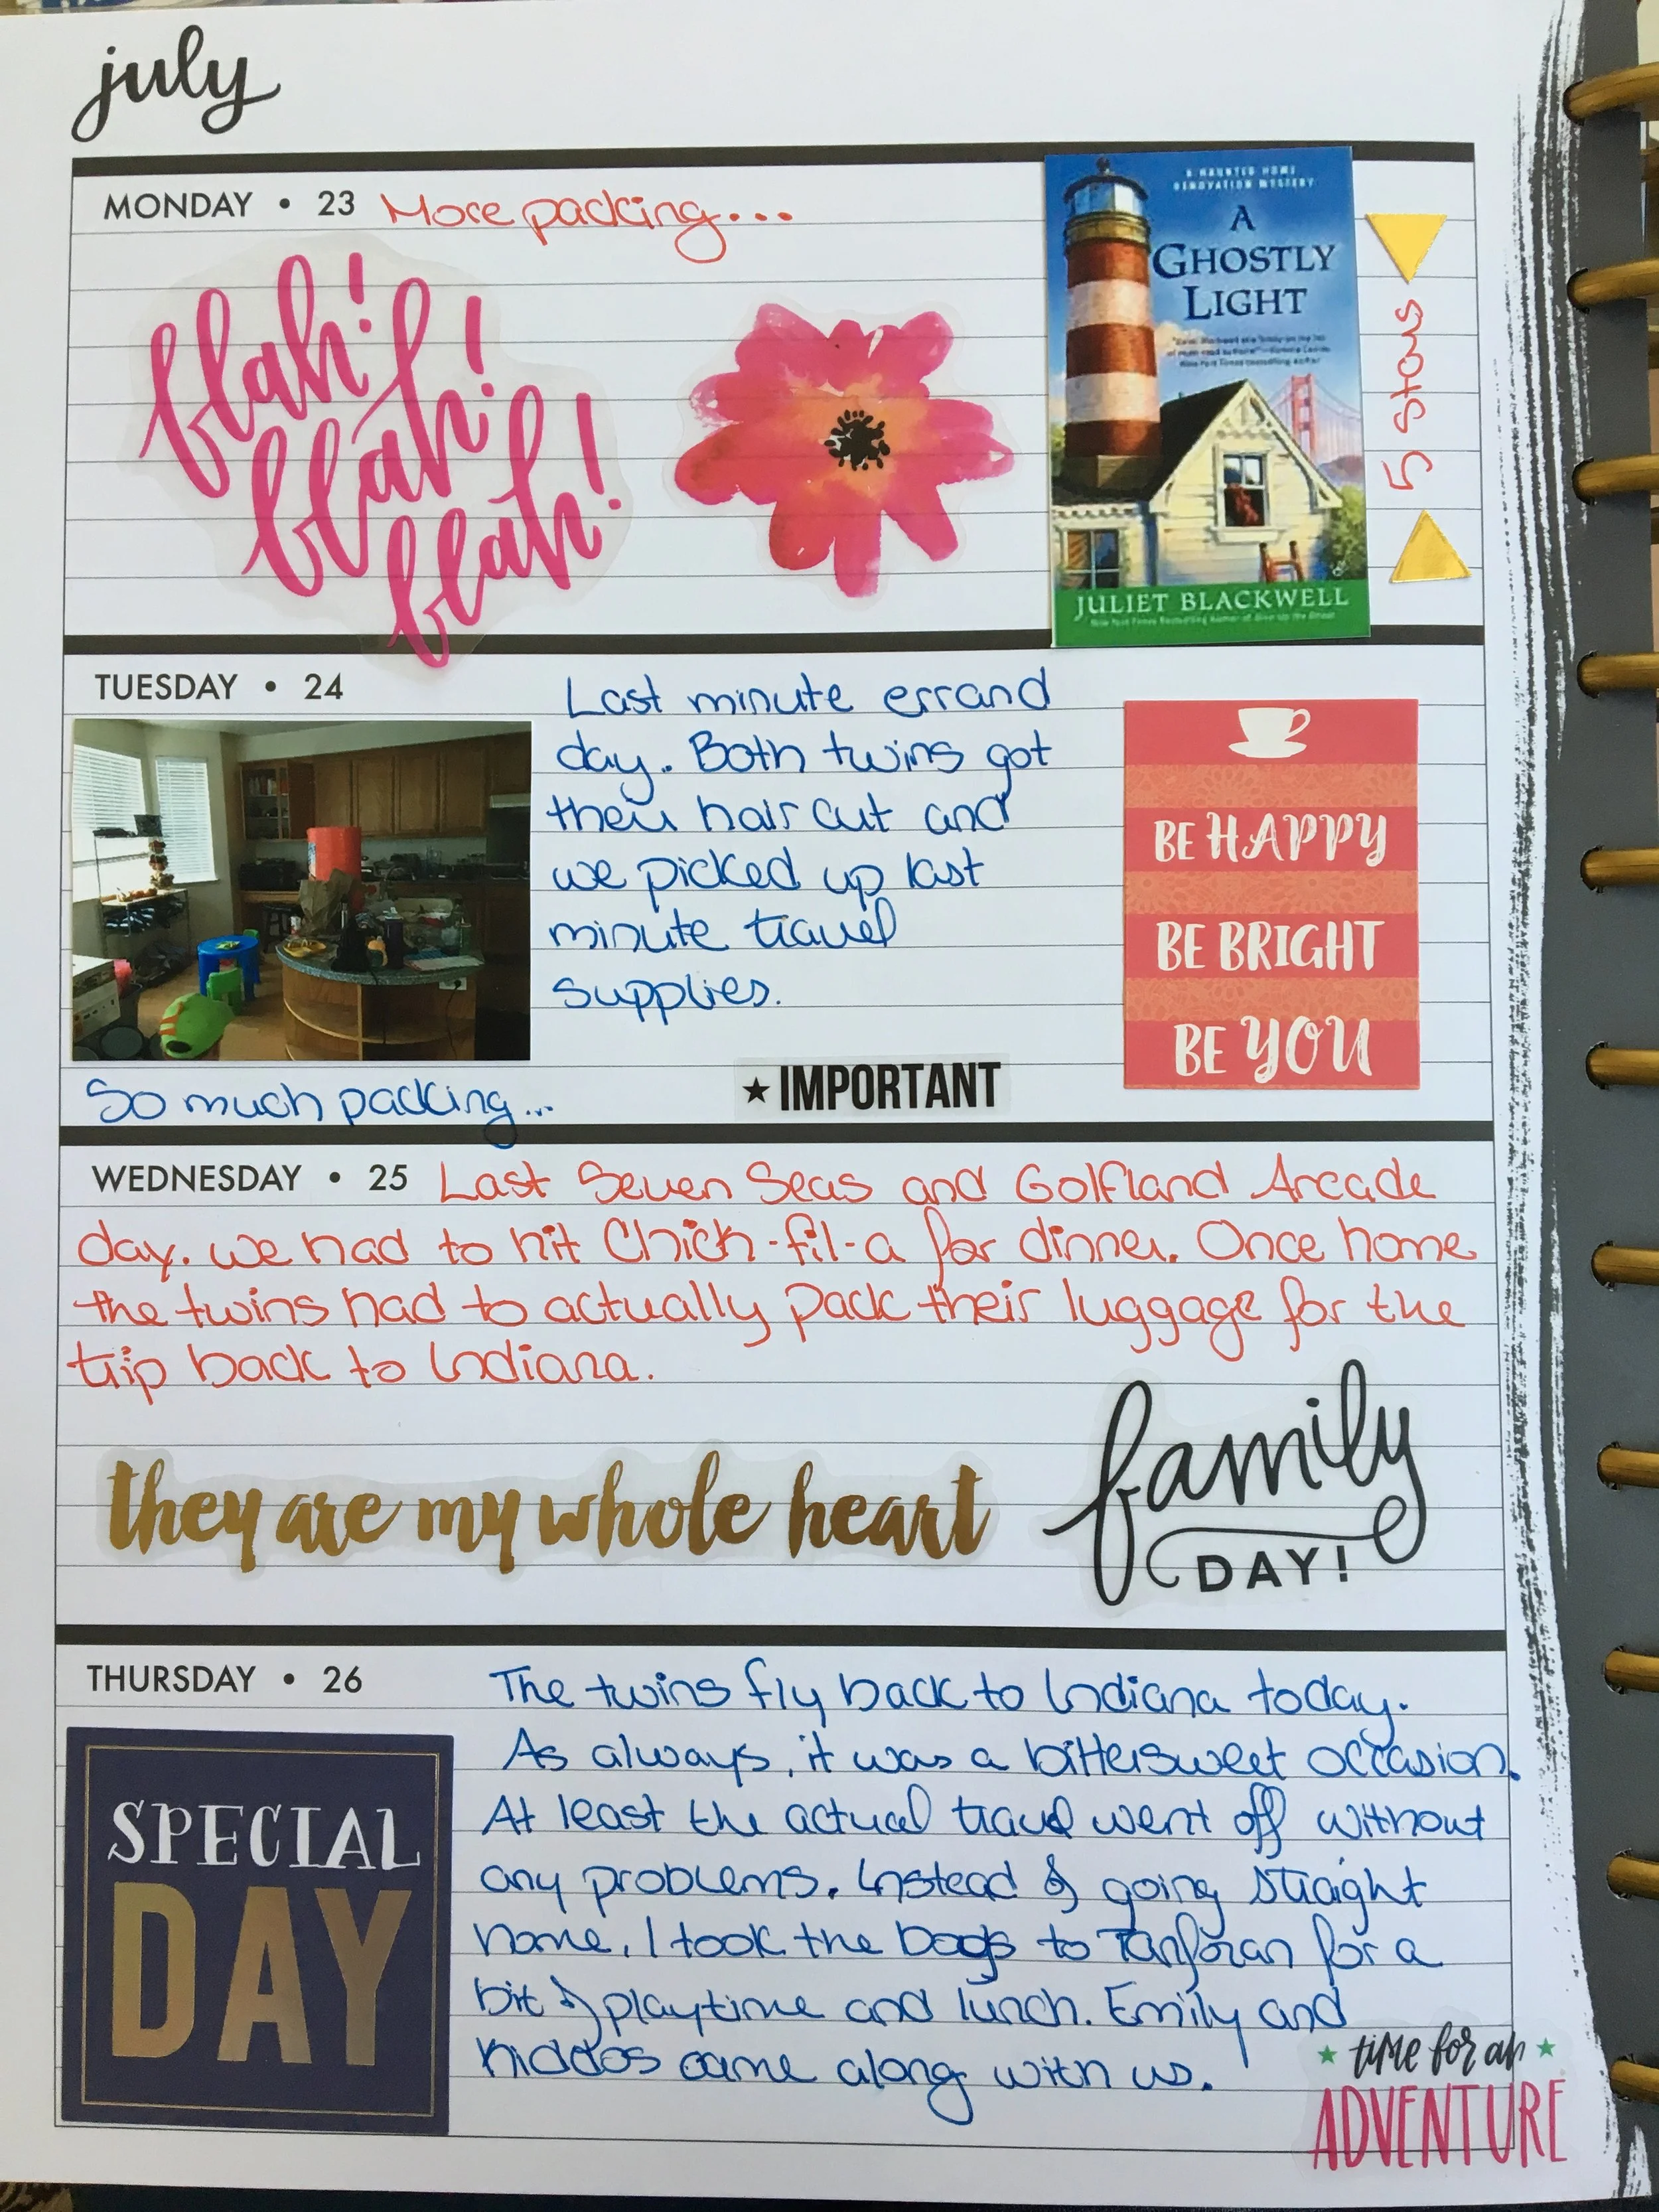 july
MONDAY • 23 More packing...
blah!
blah!
blah!
A HAUNTED HOME
RENOVATION MYSTERY
A
GHOSTLY
LIGHT
JULIET BLACKWELL
New York Times Bestselling Author of Give Up the Ghost
5 stars
TUESDAY • 24
Last minute errand
day. Both twins got
their hair cut and
we picked up last
minute travel
supplies.
So much packing...
★ IMPORTANT
BE HAPPY
BE BRIGHT
BE YOU
WEDNESDAY • 25 Last Seven Seas and Golfland Arcade
day. We had to hit Chick-fil-a for dinner. Once home
the twins had to actually pack their luggage for the
trip back to Indiana.
they are my whole heart
family
DAY!
THURSDAY • 26
The twins fly back to Indiana today.
As always, it was a bittersweet occasion.
At least the actual travel went off without
any problems. Instead of going straight
home, I took the dogs to Tanforan for a
bit of playtime and lunch. Emily and
kiddos came along with us.
SPECIAL
DAY
★ time for an ★
ADVENTURE